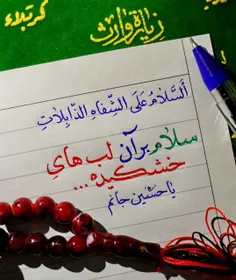 کربلاء
زیارة وارث
اَلسَّلامُ عَلَی الشِّفاهِ الذّابِلاتِ
سلام بر آن لب های
خشکیده...
یا حسین جانم